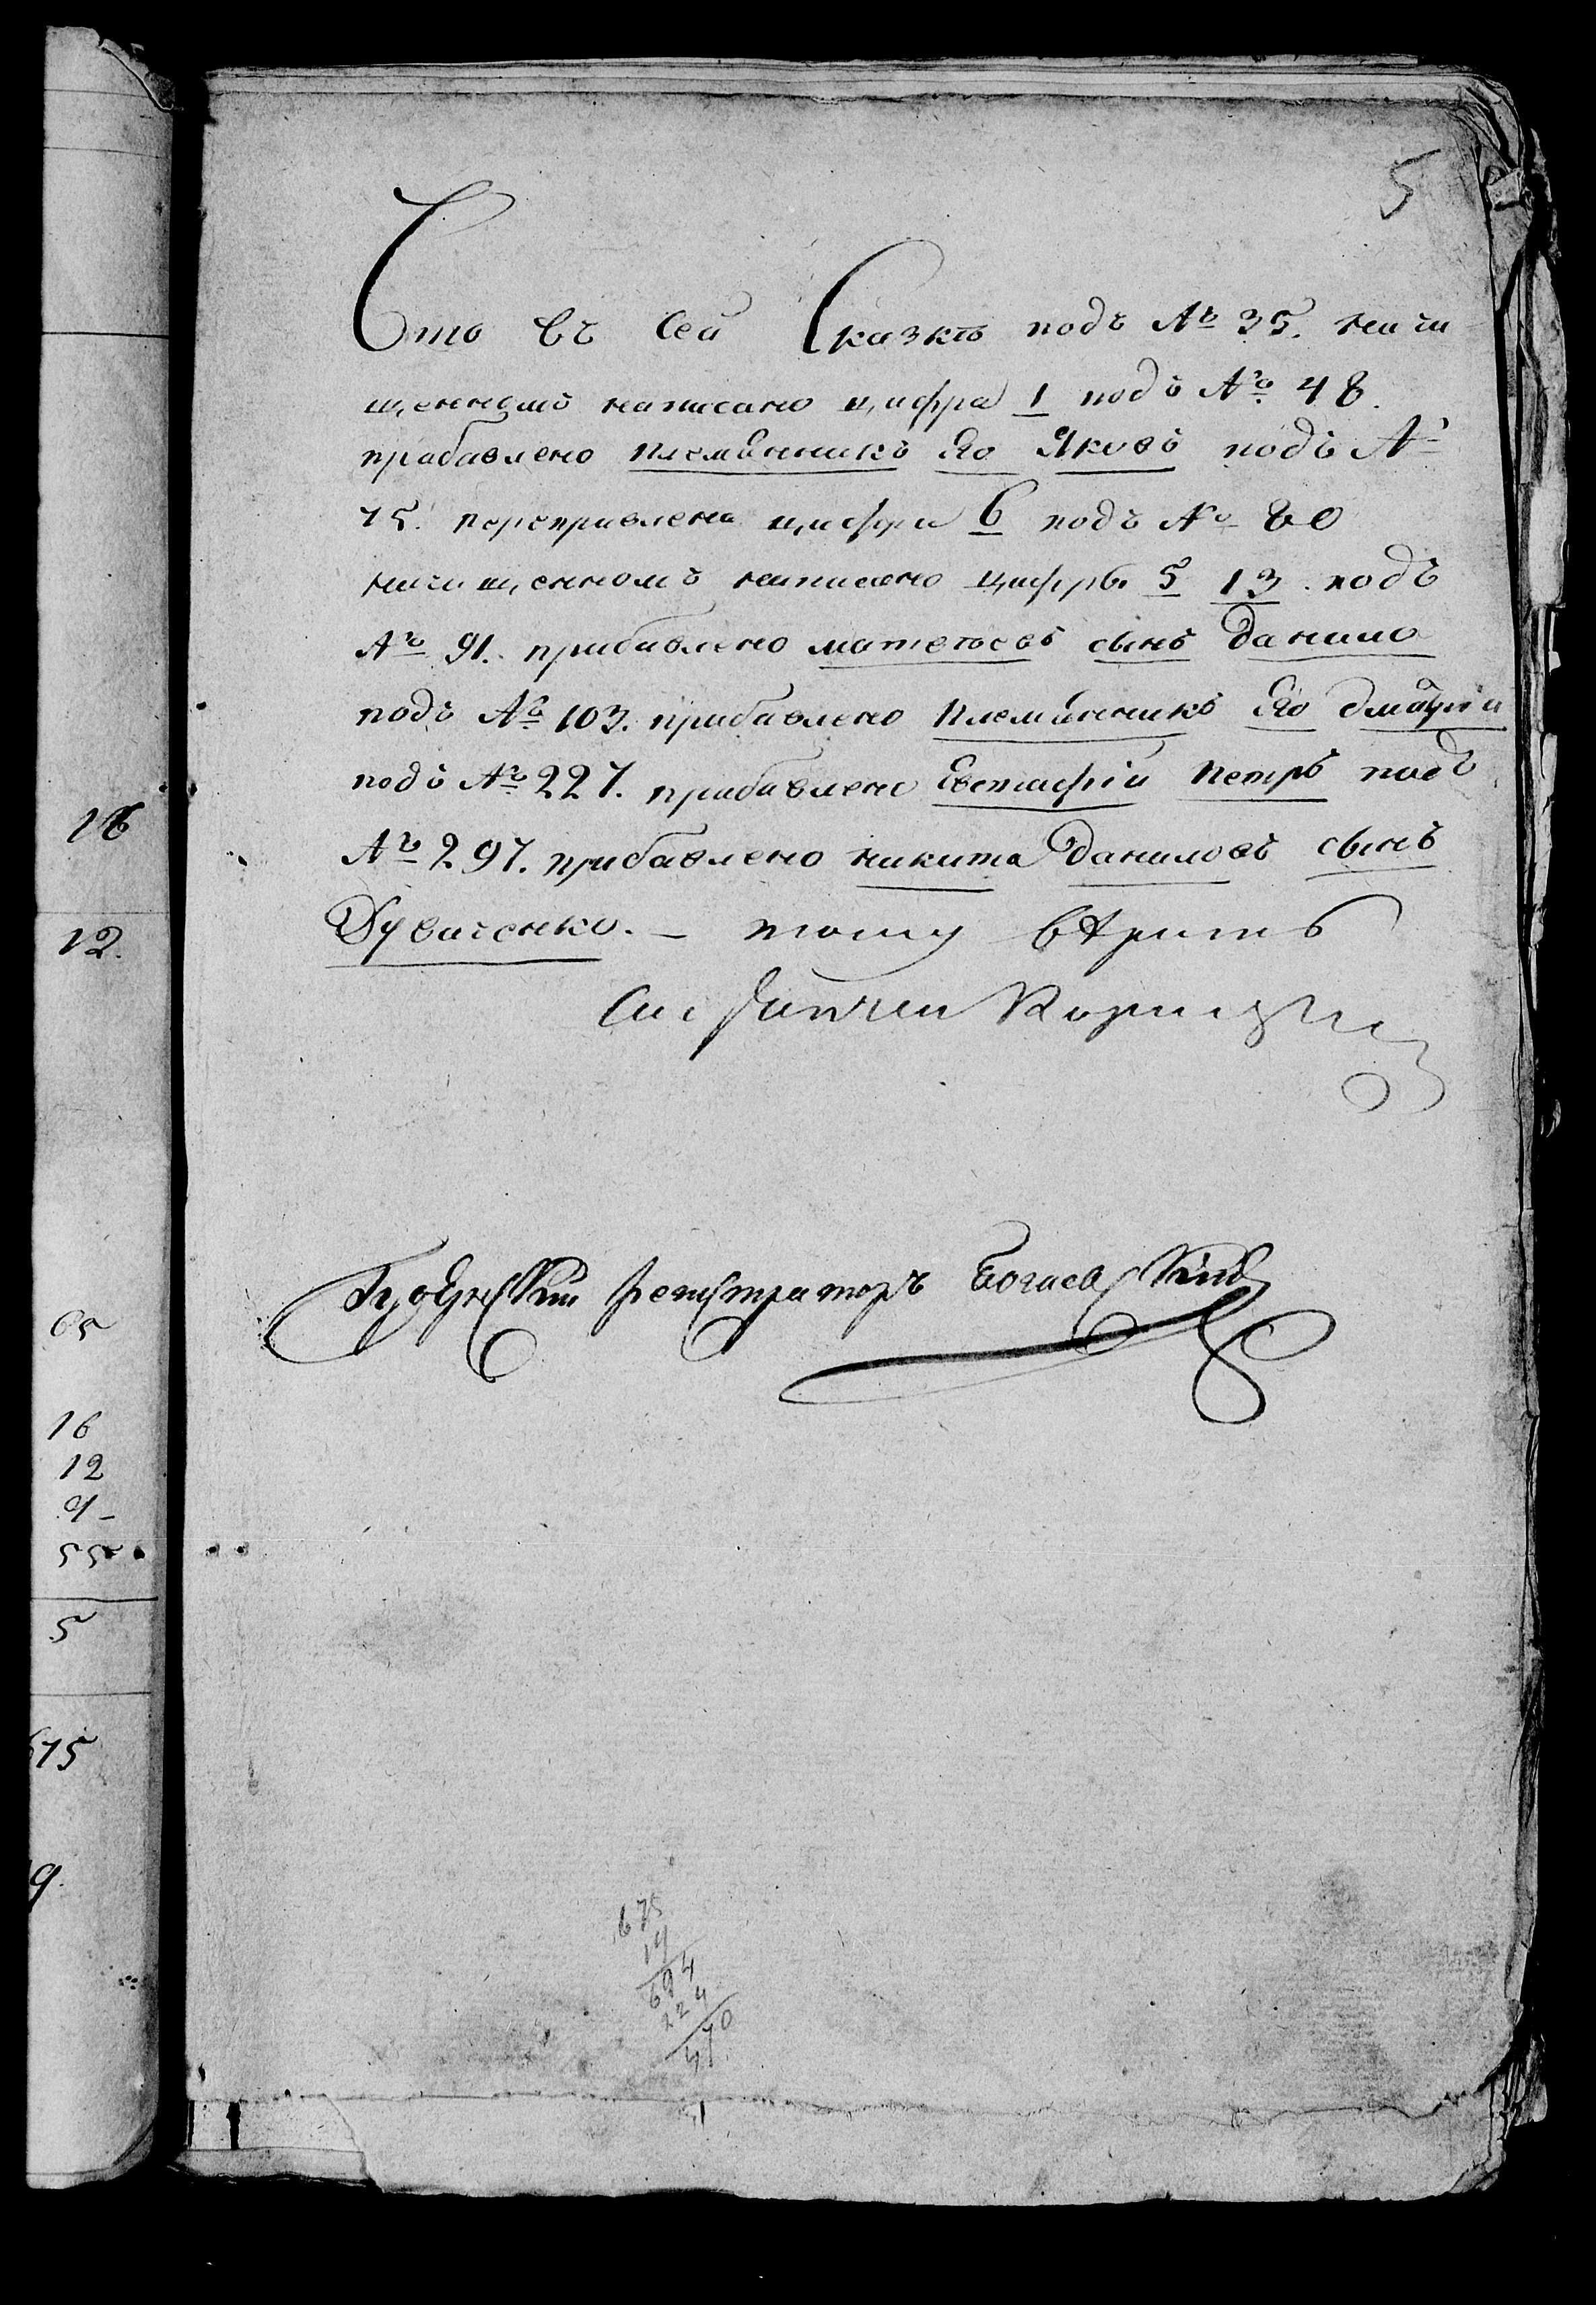 5
Что въ сей Сказкѣ подъ №. 35. начи
щенномъ написано цифра 1 подъ №. 48.
прибавлено племянникъ Его Яковъ подъ №
75. переправлена цифра 6 подъ № 80
начищенномъ написано цифры 5 13. подъ
№ 91. прибавлено матвѣевъ сынъ Данило
подъ № 103. прибавлено племянникъ Его
подъ № 227. прибавлено Евстафiй Петръ подъ
№ 297. прибавлено никита Даниловъ сынъ
тому вѣрить
Губернскiй регистраторъ
18
12.
16
12
9
5
675
9.
675
19
694
224
470